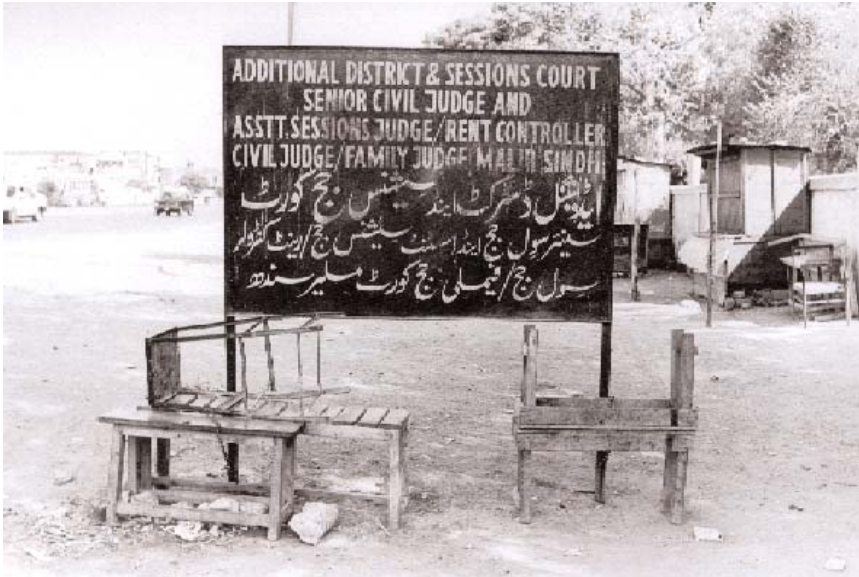 ADDITIONAL DISTRICT & SESSIONS COURT
SENIOR CIVIL JUDGE AND
ASSTT. SESSIONS JUDGE/RENT CONTROLLER
CIVIL JUDGE/FAMILY JUDGE MALIR SINDH
ایڈیشنل ڈسٹرکٹ اینڈ سیشنس جج کورٹ
سینئر سول جج اینڈ اسسٹنٹ سیشنس جج/رینٹ کنٹرولر
سول جج/فیملی جج کورٹ ملیر سندھ